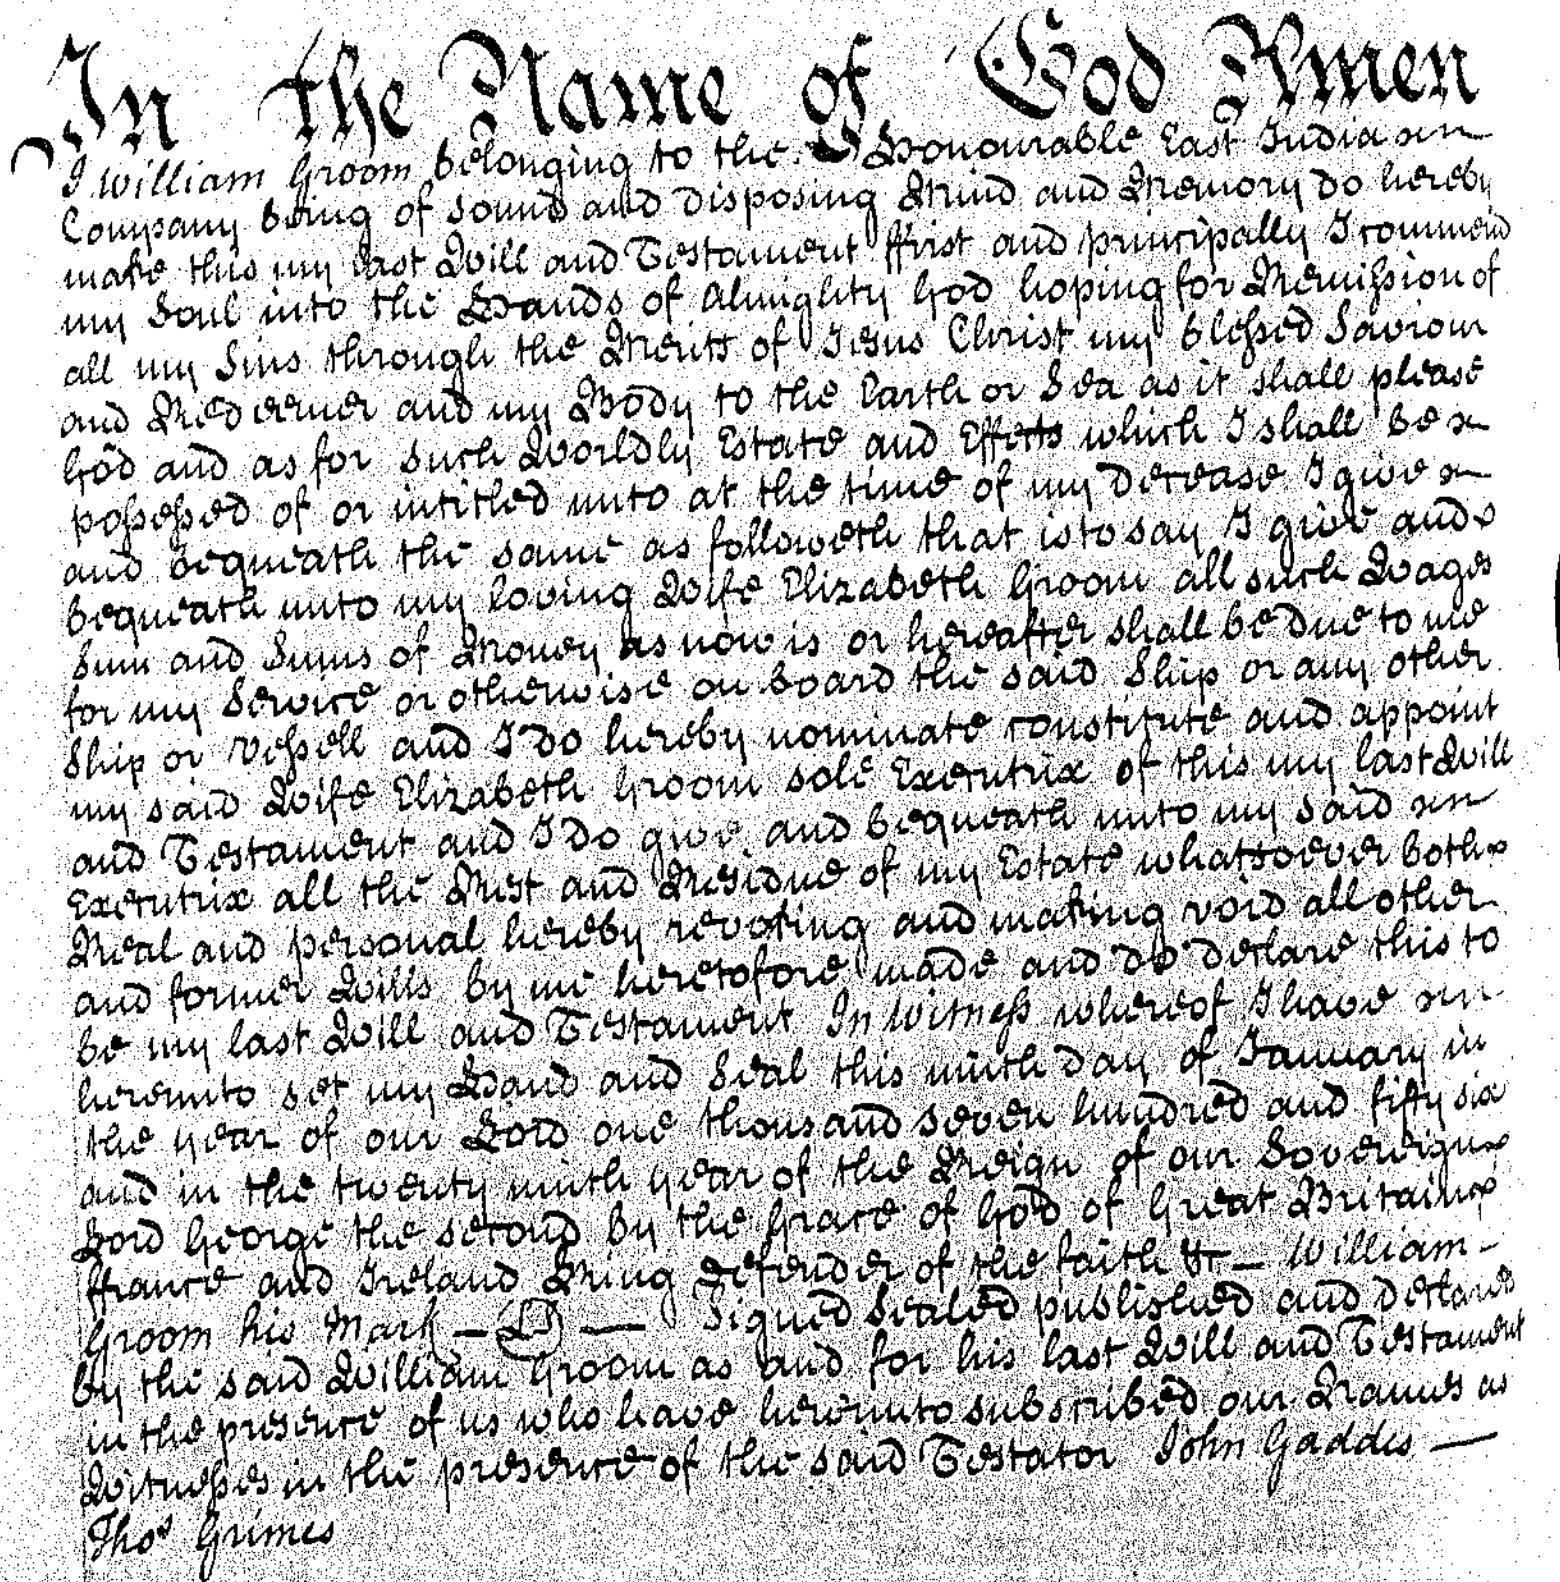 In the Name of God Amen
I William Groom belonging to the Honourable East India
Company being of sound and disposing Mind and Memory do hereby
make this my last Will and Testament ffirst and principally I commend
my Soul into the Hands of Almighty God hoping for Remission of
all my Sins through the Merits of Jesus Christ my blessed Saviour
and Redeemer and my Body to the Earth or Sea as it shall please
God and as for such Worldly Estate and Effects which I shall be
possessed of or intitled unto at the time of my decease I give
and bequeath the same as followeth that is to say I give and
bequeath unto my loving Wife Elizabeth Groom all such Wages
Sum and Sums of Money as now is or hereafter shall be due to me
for my Service or otherwise on board the said Ship or any other
Ship or Vessell and I do hereby nominate constitute and appoint
my said Wife Elizabeth Groom sole Executrix of this my last Will
and Testament and I do give and bequeath unto my said
Executrix all the Rest and Residue of my Estate whatsoever both
Real and personal hereby revoking and making void all other
and former Wills by me heretofore made and do declare this to
be my last Will and Testament In Witness whereof I have
hereunto set my Hand and Seal this ninth day of January in
the year of our Lord one thousand seven hundred and fifty six
and in the twenty ninth year of the Reign of our Sovereign
Lord George the second by the Grace of God of Great Britain
ffrance and Ireland King Defender of the faith &c — William -
Groom his Mark — LS — Signed Sealed published and declared
by the said William Groom as and for his last Will and Testament
in the presence of us who have hereunto subscribed our Names as
Witnesses in the presence of the said Testator John Gaddes —
Thos Grimes